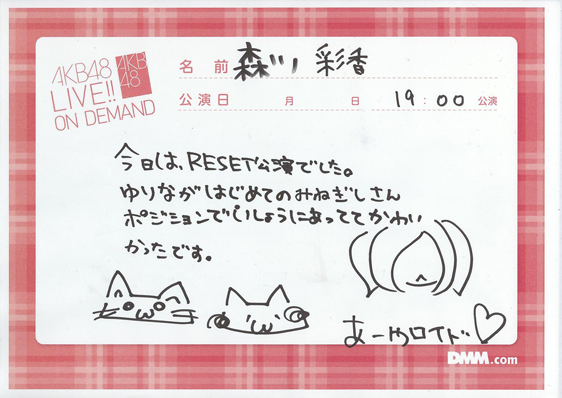 AKB48
LIVE!!
ON DEMAND
AKB
48
名前 森川 彩香
公演日 月 日 19:00 公演
今日は、RESET公演でした。
ゆりながはじめてのみねぎしさん
ポジションでいしょうにあっててかわい
かったです。
あーやロイド♡
DMM.com